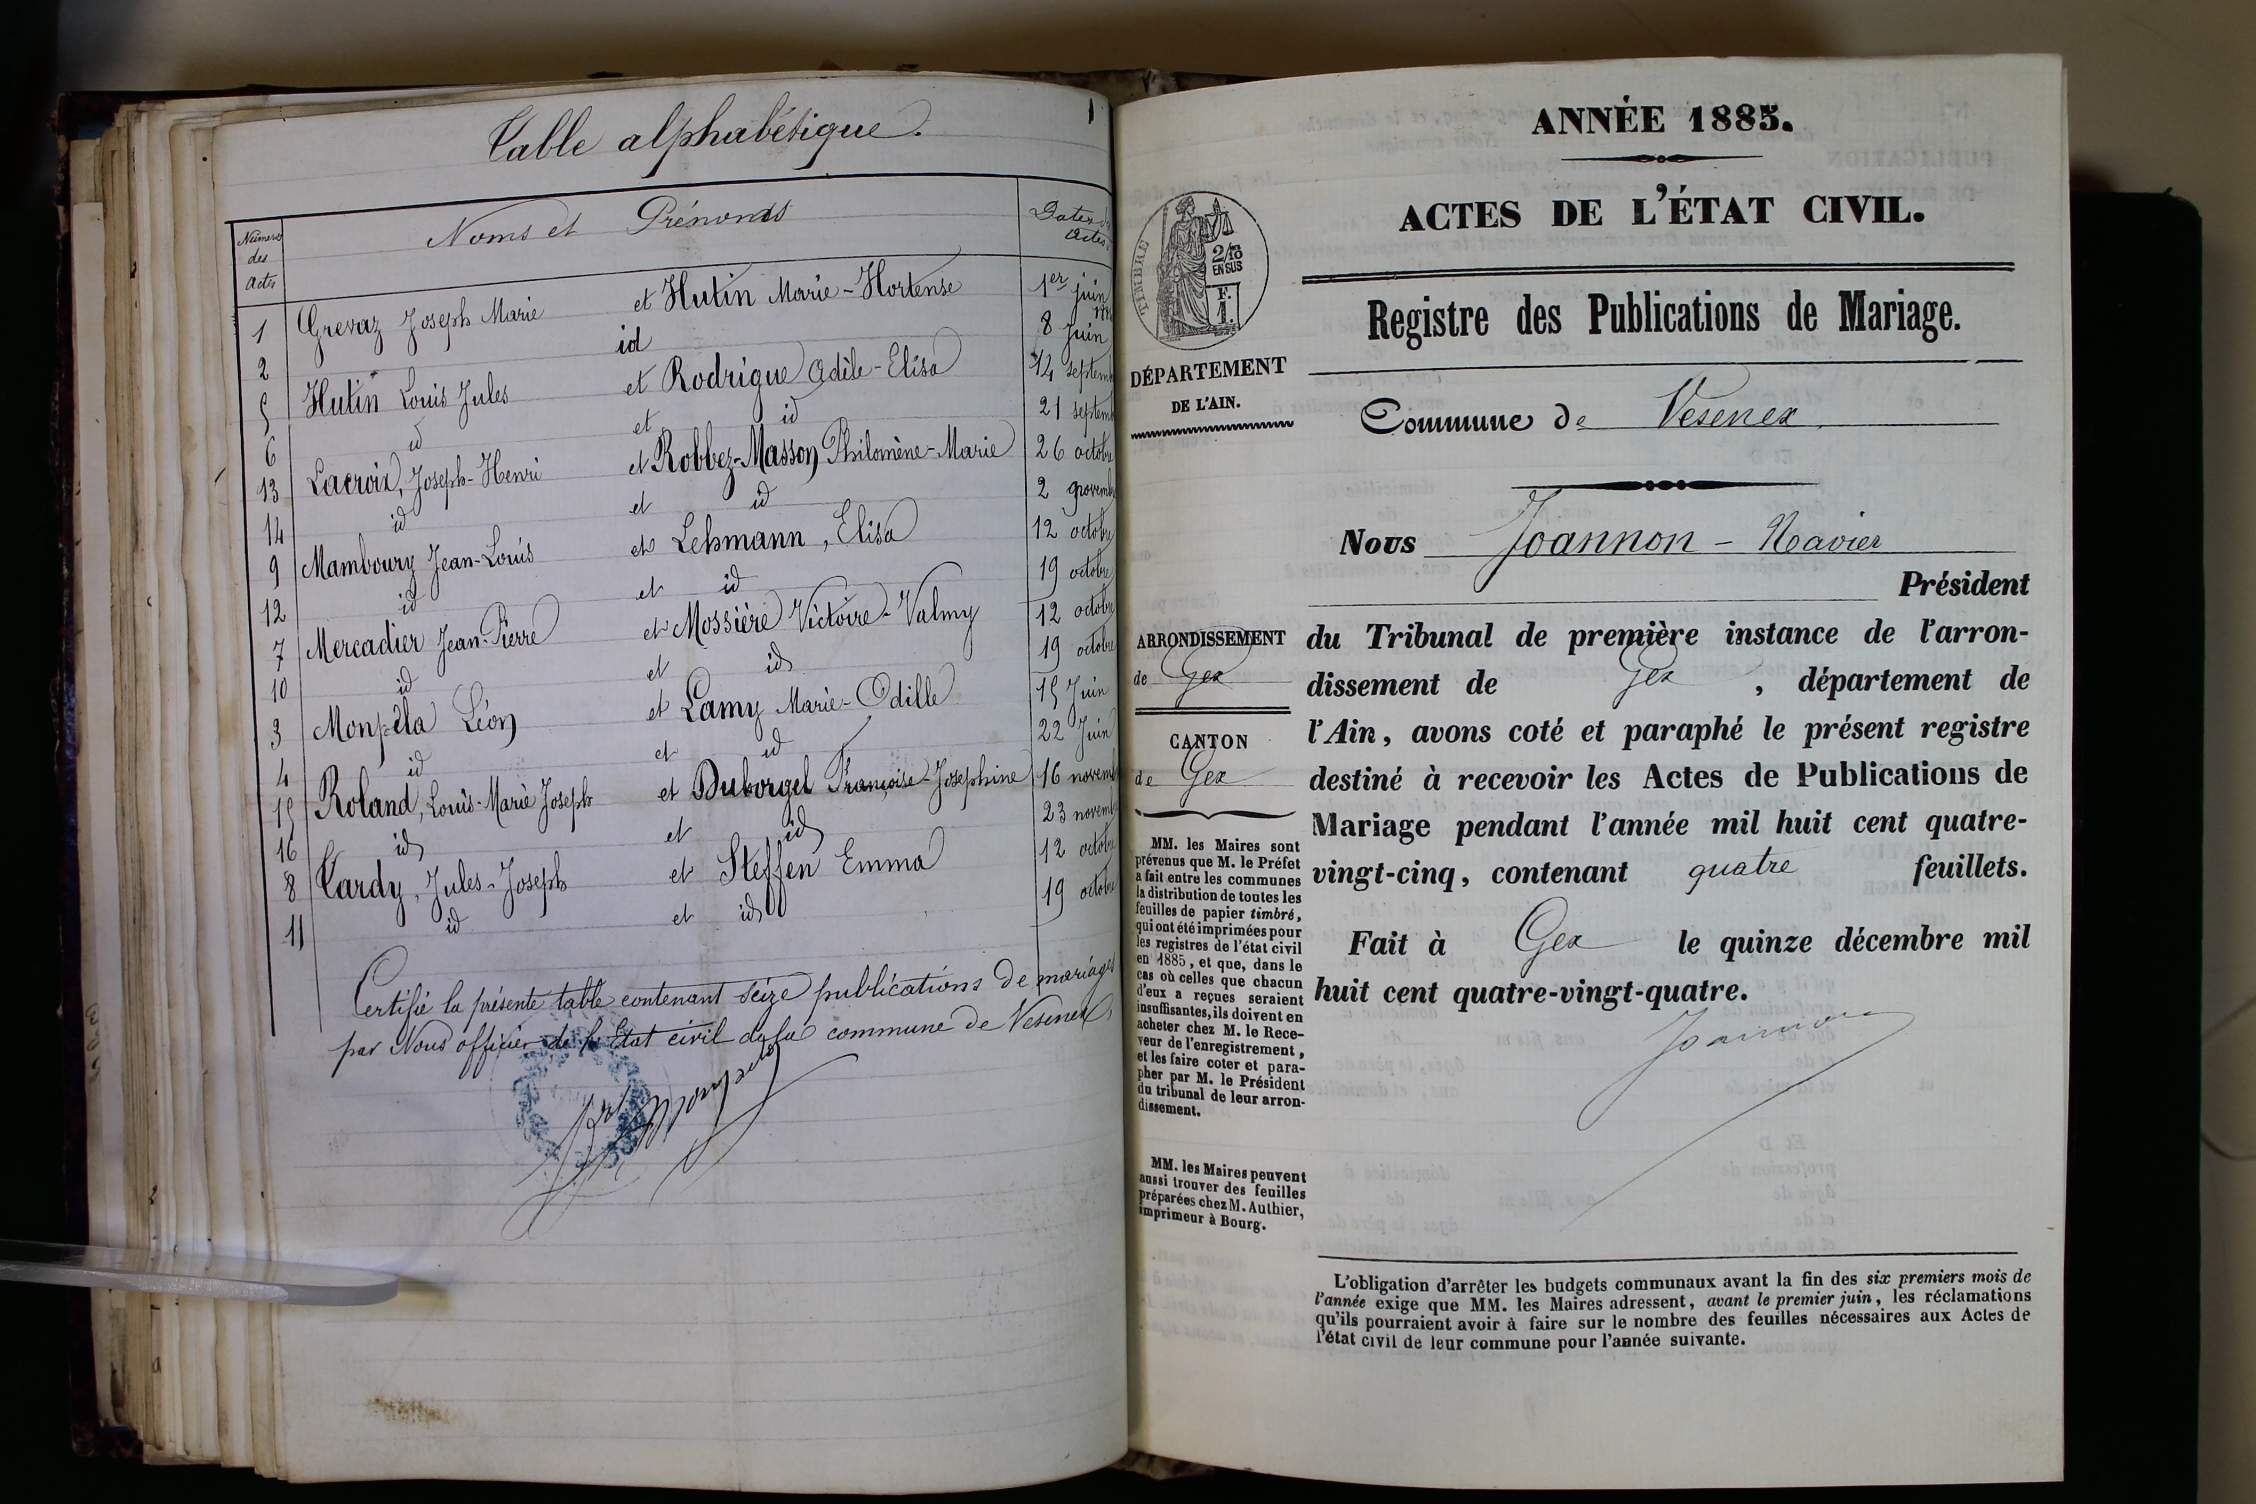 1
Table alphabétique.
Numéros des Actes
Noms et Prénoms
Dates des Actes
1 Grevaz Joseph Marie et Hutin Marie-Hortense 1er juin
2 id 8 Juin
5 Hutin Louis Jules et Rodrigue Adèle-Elisa 14 septemb
6 id et id 21 septemb
13 Lacroix, Joseph-Henri et Robbez-Masson Philomène-Marie 26 octobre
14 id et id 2 novembre
9 Mamboury Jean-Louis et Lehmann, Elisa 12 octobre
12 id et id 19 octobre
7 Mercadier Jean-Pierre et Mossière Victoire-Valmy 12 octobre
10 id et id 19 octobre
3 Monpêla Léon et Lamy Marie-Odille 15 Juin
4 id et id 22 Juin
15 Roland, Louis-Marie Joseph et Duborgel Françoise-Josephine 16 novemb
16 id et id 23 novemb
8 Tardy, Jules-Joseph et Steffen Emma 12 octobre
11 id et id 19 octobre
Certifié la présente table contenant seize publications de mariages
par Nous officier de l'Etat civil de la commune de Vesenex,
ANNÉE 1885.
ACTES DE L'ÉTAT CIVIL.
TIMBRE
2/10
EN SUS
F.
1.
DÉPARTEMENT
DE L'AIN.
Registre des Publications de Mariage.
Commune de Vesenex
Nous Joannon-Navier
Président
du Tribunal de première instance de l'arron-
dissement de Gex, département de
l'Ain, avons coté et paraphé le présent registre
destiné à recevoir les Actes de Publications de
Mariage pendant l'année mil huit cent quatre-
vingt-cinq, contenant quatre feuillets.
Fait à Gex le quinze décembre mil
huit cent quatre-vingt-quatre.
Joannon
ARRONDISSEMENT
de Gex
CANTON
de Gex
MM. les Maires sont
prévenus que M. le Préfet
a fait entre les communes
la distribution de toutes les
feuilles de papier timbré,
qui ont été imprimées pour
les registres de l'état civil
en 1885, et que, dans le
cas où celles que chacun
d'eux a reçues seraient
insuffisantes, ils doivent en
acheter chez M. le Rece-
veur de l'enregistrement,
et les faire coter et para-
pher par M. le Président
du tribunal de leur arron-
dissement.
MM. les Maires peuvent
aussi trouver des feuilles
préparées chez M. Authier,
imprimeur à Bourg.
L'obligation d'arrêter les budgets communaux avant la fin des six premiers mois de
l'année exige que MM. les Maires adressent, avant le premier juin, les réclamations
qu'ils pourraient avoir à faire sur le nombre des feuilles nécessaires aux Actes de
l'état civil de leur commune pour l'année suivante.